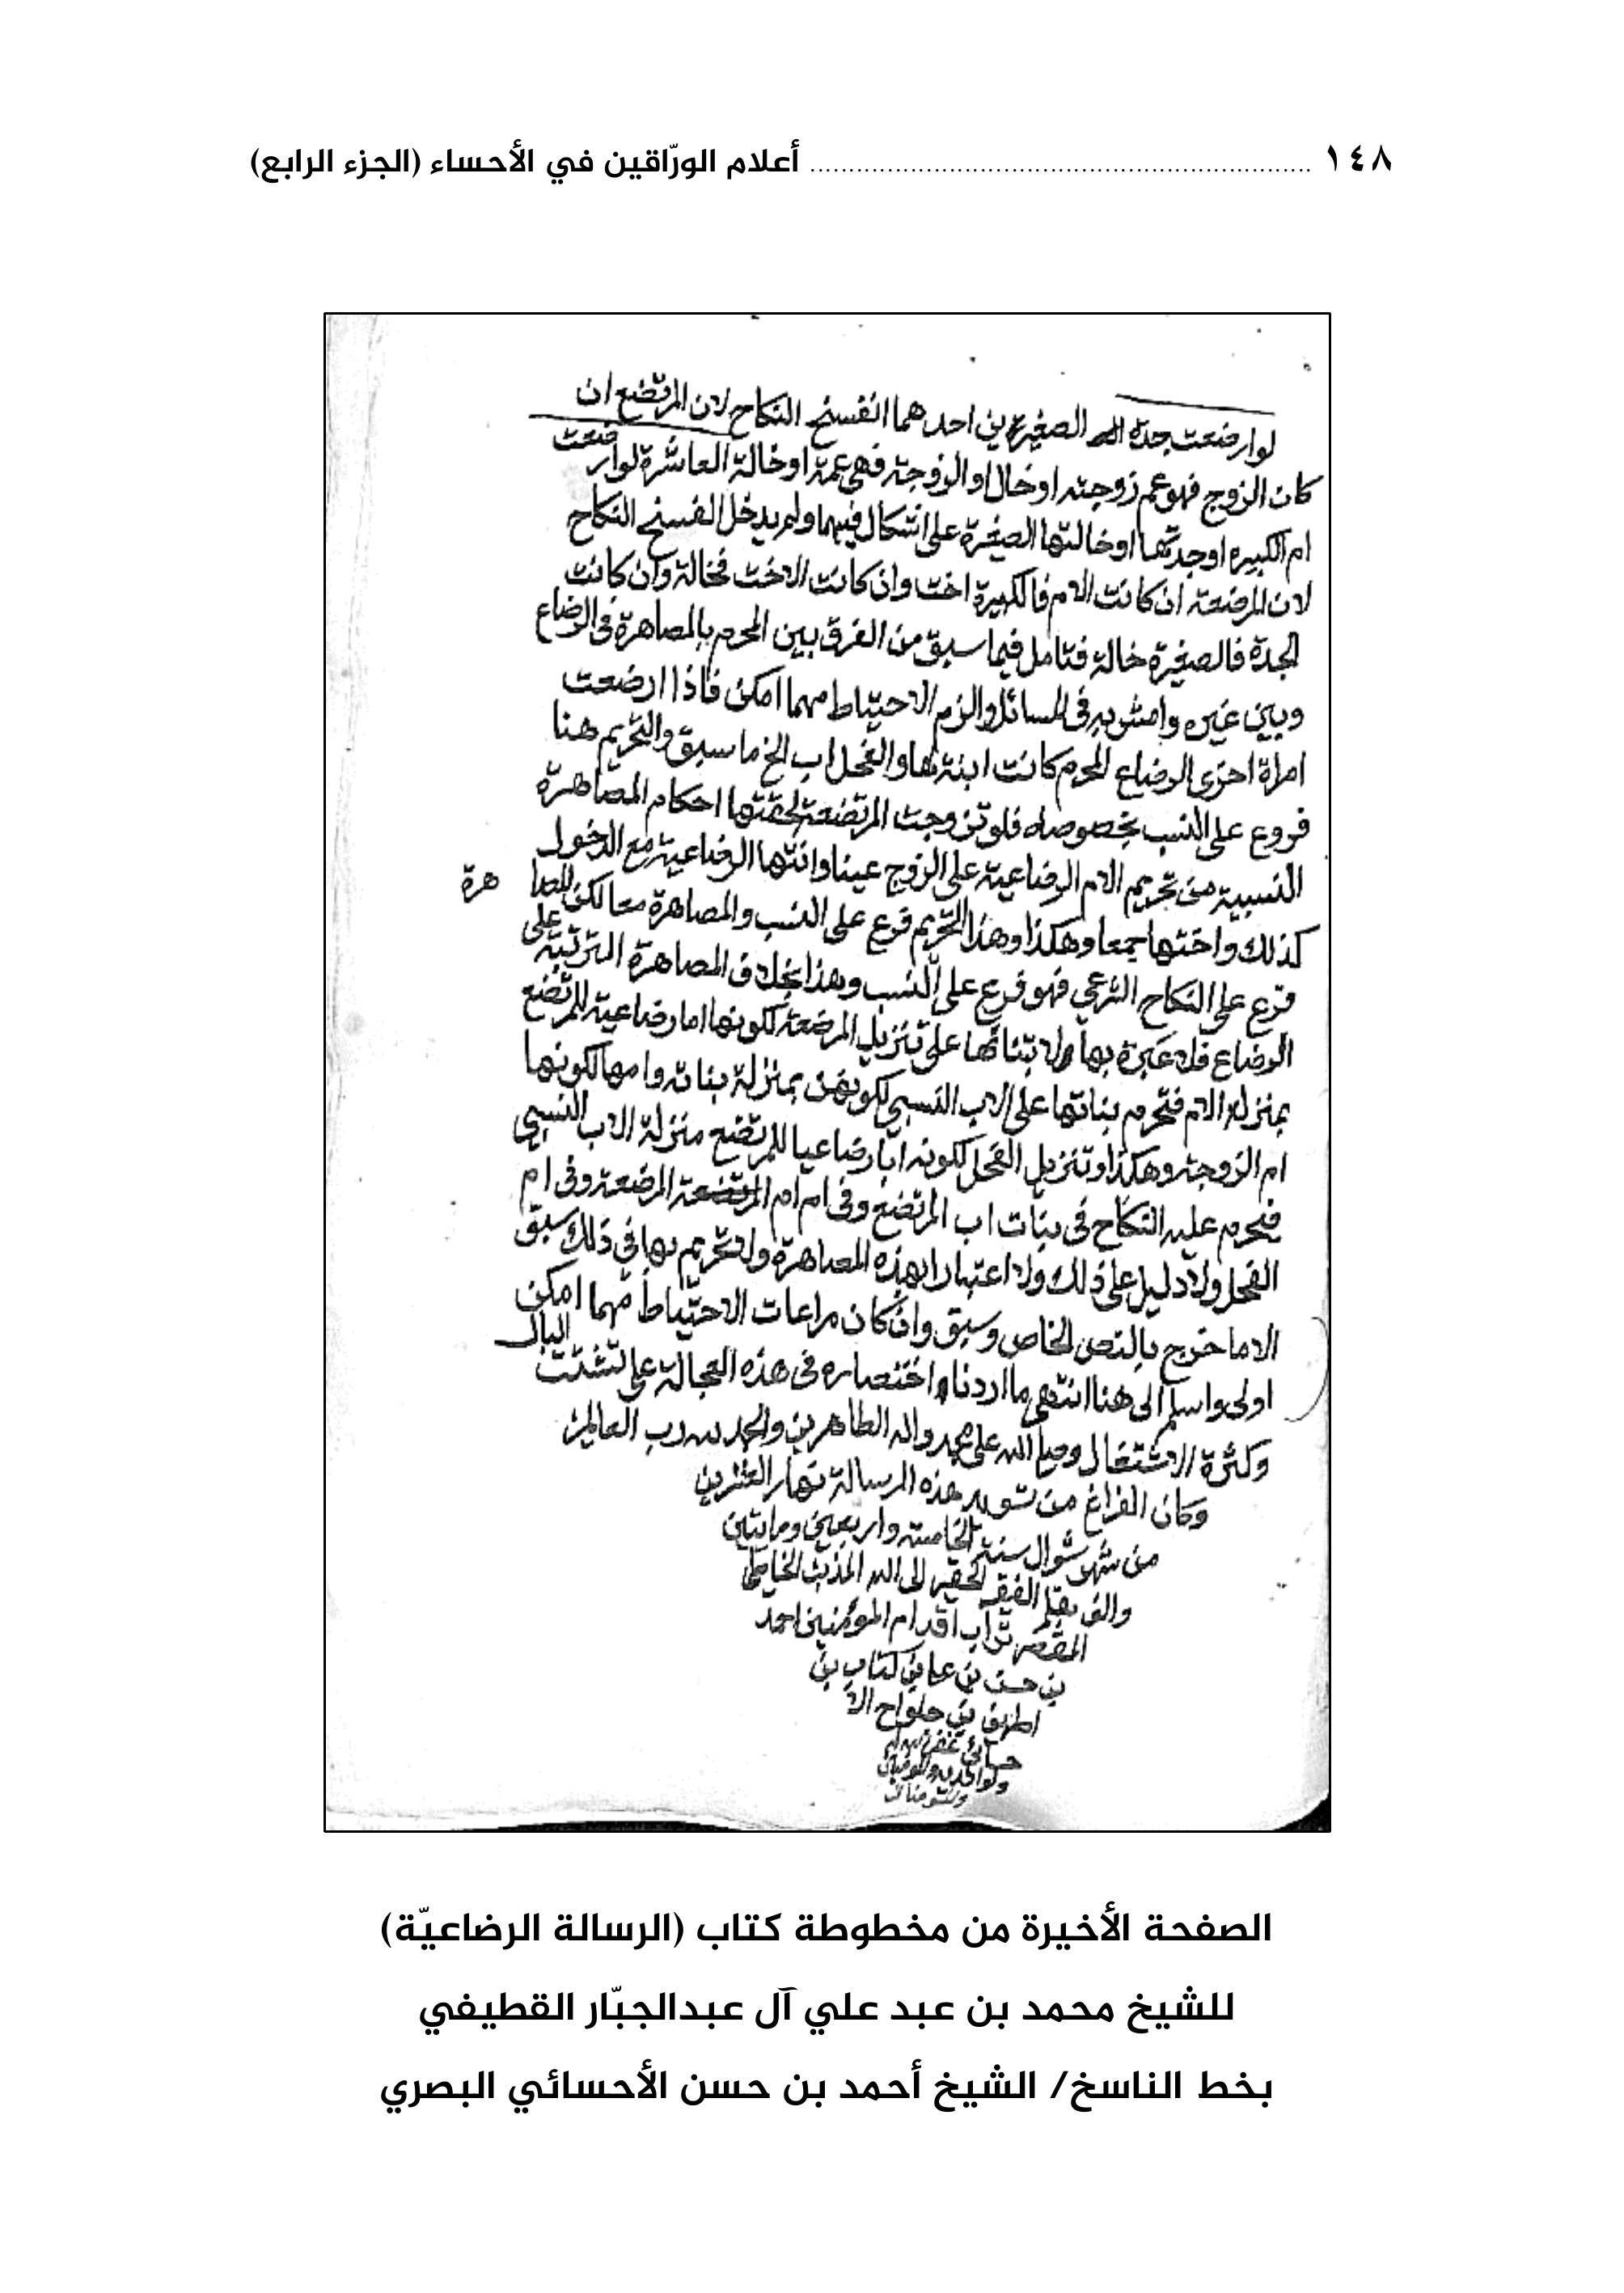 ١٤٨ ........ أعلام الورّاقين في الأحساء (الجزء الرابع)
لو ارضعت جدة الصغيرين احدهما انفسخ النكاح لان المرتضع ان
كان الزوج فهو عم زوجته او خال او الزوجة فهي عمة او خالة العاشرة لو ارضعت
ام الكبيره او جدتها او خالتها الصغيرة على اشكال فيهما ولم يدخل انفسخ النكاح
لان المرضعة ان كانت الام فالكبيرة اخت وان كانت الاخت فخالة وان كانت
الجدة فالصغيرة خالة فتامل فيما سبق من الفرق بين المحرم بالمصاهرة في الرضاع
وبين غيره وامش به في المسائل والزم الاحتياط مهما امكن فاذا ارضعت
امراة اخرى الرضاع المحرم كانت ابنة لها والفحل اب الخ ما سبق والتحريم هنا
فروع على النسب بخصوصه فلو تزوجت المرتضعة لحقتها احكام المصاهرة
النسبية من تحريم الام الرضاعية على الزوج عينا وابنتها الرضاعية مع الدخول
كذلك واختها جمعا وهكذا وهذا التحريم فرع على النسب والمصاهرة معا لكن المصا هرة
فرع على النكاح الشرعي فهو فرع على النسب وهذا بخلاف المصاهرة المترتبة على
الرضاع فلا عبرة بها ولا بتنائها على تنزيل المرضعة لكونها اما رضاعية للمرتضع
بمنزلة الام فتحرم بناتها على الاب النسبي لكونهن بمنزلة بناته وامها لكونها
ام الزوجة وهكذا وتنزيل الفحل لكونه ابا رضاعيا للمرتضع منزلة الاب النسبي
فيحرم عليه النكاح في بنات اب المرتضع وفي ام ام المرضعة وفي ام
الفحل ولا دليل على ذلك ولا اعتبار بهذه المصاهرة ولا تحريم بها في ذلك سبق
الا ما خرج بالنص الخاص وسبق وان كان مراعات الاحتياط مهما امكن
اولى واسلم الى هنا انتهى ما اردنا اختصاره في هذه العجالة على تشتت البال
وكثرة الاشتغال وصلى الله على محمد واله الطاهرين والحمد لله رب العالمين
وكان الفراغ من تسويد هذه الرسالة نهار العشرين
من شهر شوال سنة الخامسة واربعين ومايتين
والف بقلم الفقير الحقير الى الله المذنب الخاطي
المقصر تراب اقدام المؤمنين احمد
بن حسن بن علي بن كتاب بن
بن حلواح الا
حسائي غفر الله له
ولوالديه
الصفحة الأخيرة من مخطوطة كتاب (الرسالة الرضاعيّة)
للشيخ محمد بن عبد علي آل عبدالجبّار القطيفي
بخط الناسخ/ الشيخ أحمد بن حسن الأحسائي البصري